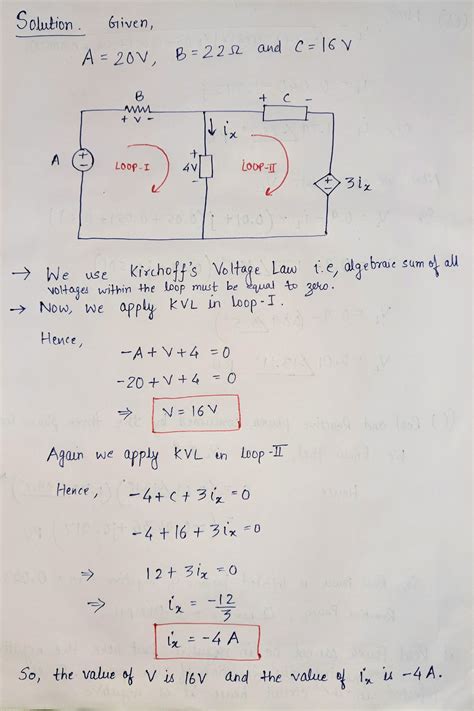 Solution. Given,
A = 20V, B = 22Ω and C = 16V
B
+ V -
+ C -
↓ ix
A
+
-
LOOP-I
+
4V
-
LOOP-II
+
-
3ix
→ We use Kirchoff's Voltage Law i.e, algebraic sum of all
voltages within the loop must be equal to zero.
→ Now, we apply KVL in Loop-I.
Hence,
-A + V + 4 = 0
-20 + V + 4 = 0
⇒ V = 16V
Again we apply KVL in Loop-II
Hence, -4 + C + 3ix = 0
-4 + 16 + 3ix = 0
⇒ 12 + 3ix = 0
⇒ ix = -12/3
ix = -4 A
So, the value of V is 16V and the value of ix is -4A.